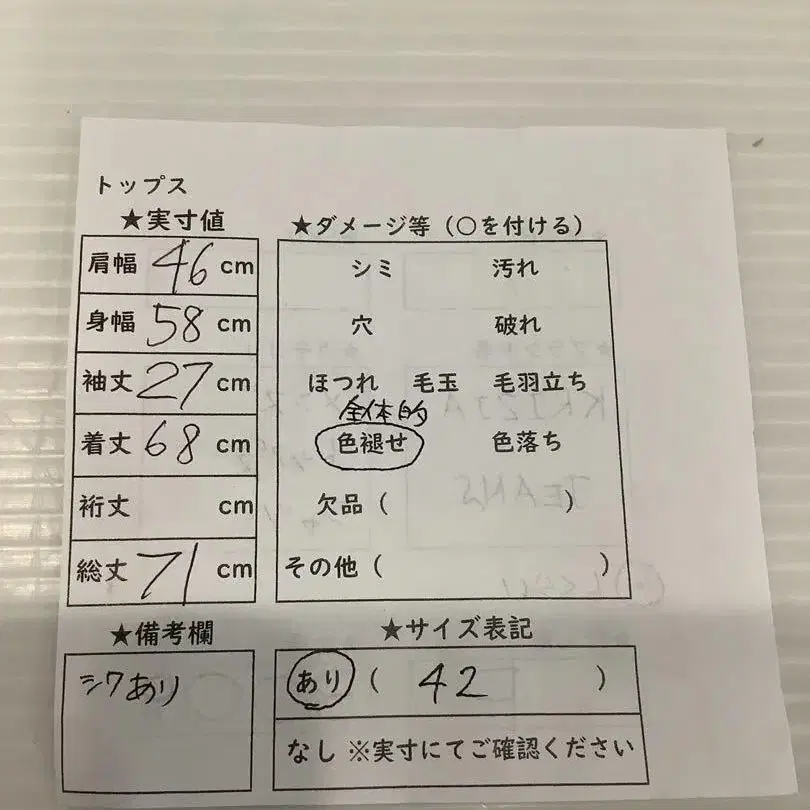 トップス
★実寸値
肩幅 46 cm
身幅 58 cm
袖丈 27 cm
着丈 68 cm
裄丈 cm
総丈 71 cm
★ダメージ等（○を付ける）
シミ 汚れ
穴 破れ
ほつれ 毛玉 毛羽立ち
全体的
色褪せ 色落ち
欠品（ ）
その他（ ）
★備考欄
シワあり
★サイズ表記
あり（ 42 ）
なし ※実寸にてご確認ください
KRIZIA
JEANS